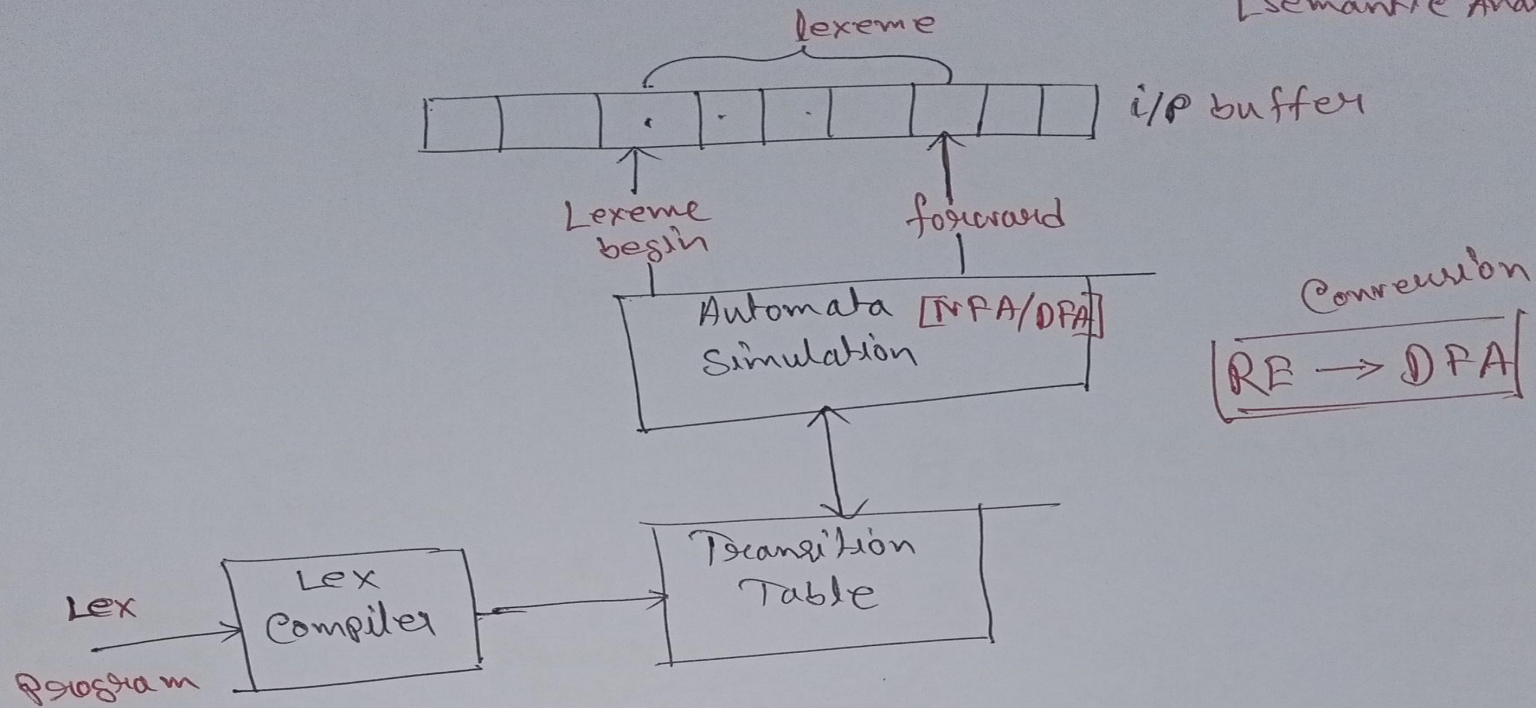 lexeme
i/p buffer
Lexeme
begin
forward
Automata [NFA/DFA]
Simulation
Conversion
RE → DFA
Transition
Table
Lex
Compiler
Lex
Program